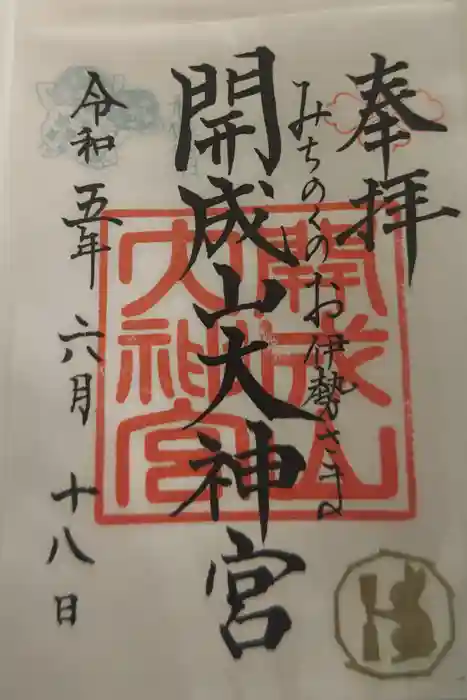 奉拝
みちのくのお伊勢さま
開成山大神宮
令和五年六月十八日
開成山
大神宮